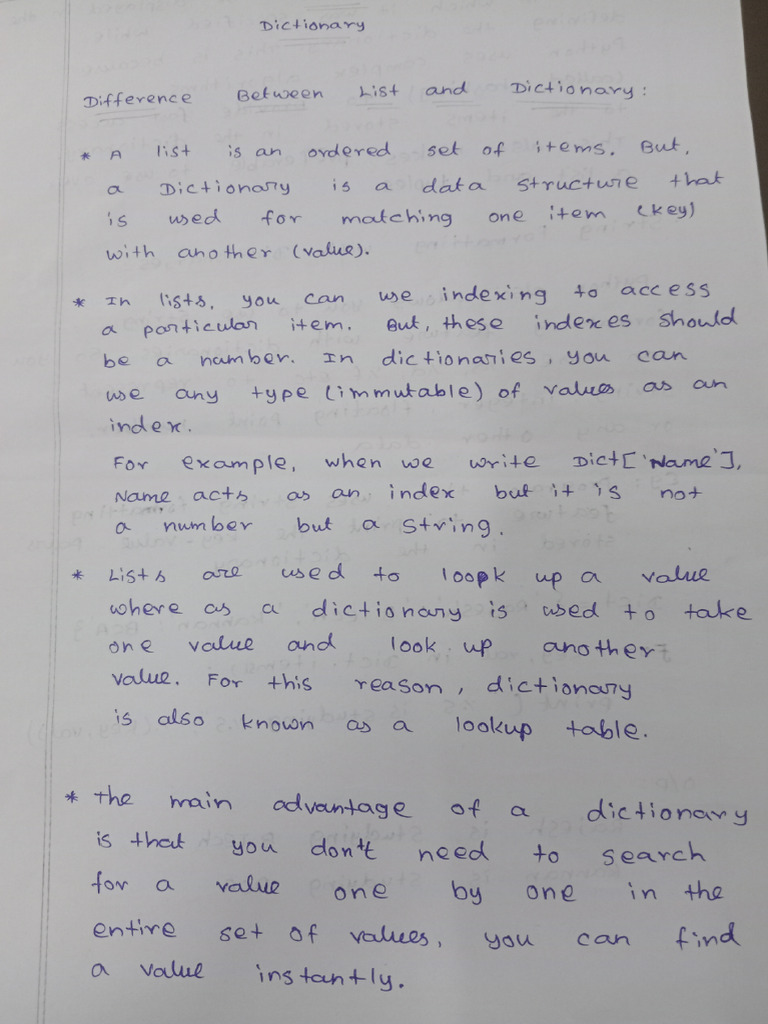 Dictionary
Difference Between List and Dictionary:
* A list is an ordered set of items. But,
a Dictionary is a data structure that
is used for matching one item (key)
with another (value).
* In lists, you can use indexing to access
a particular item. But, these indexes should
be a number. In dictionaries, you can
use any type (immutable) of values as an
index.
For example, when we write Dict['Name'],
Name acts as an index but it is not
a number but a string.
* Lists are used to look up a value
where as a dictionary is used to take
one value and look up another
value. For this reason, dictionary
is also known as a lookup table.
* The main advantage of a dictionary
is that you don't need to search
for a value one by one in the
entire set of values, you can find
a value instantly.